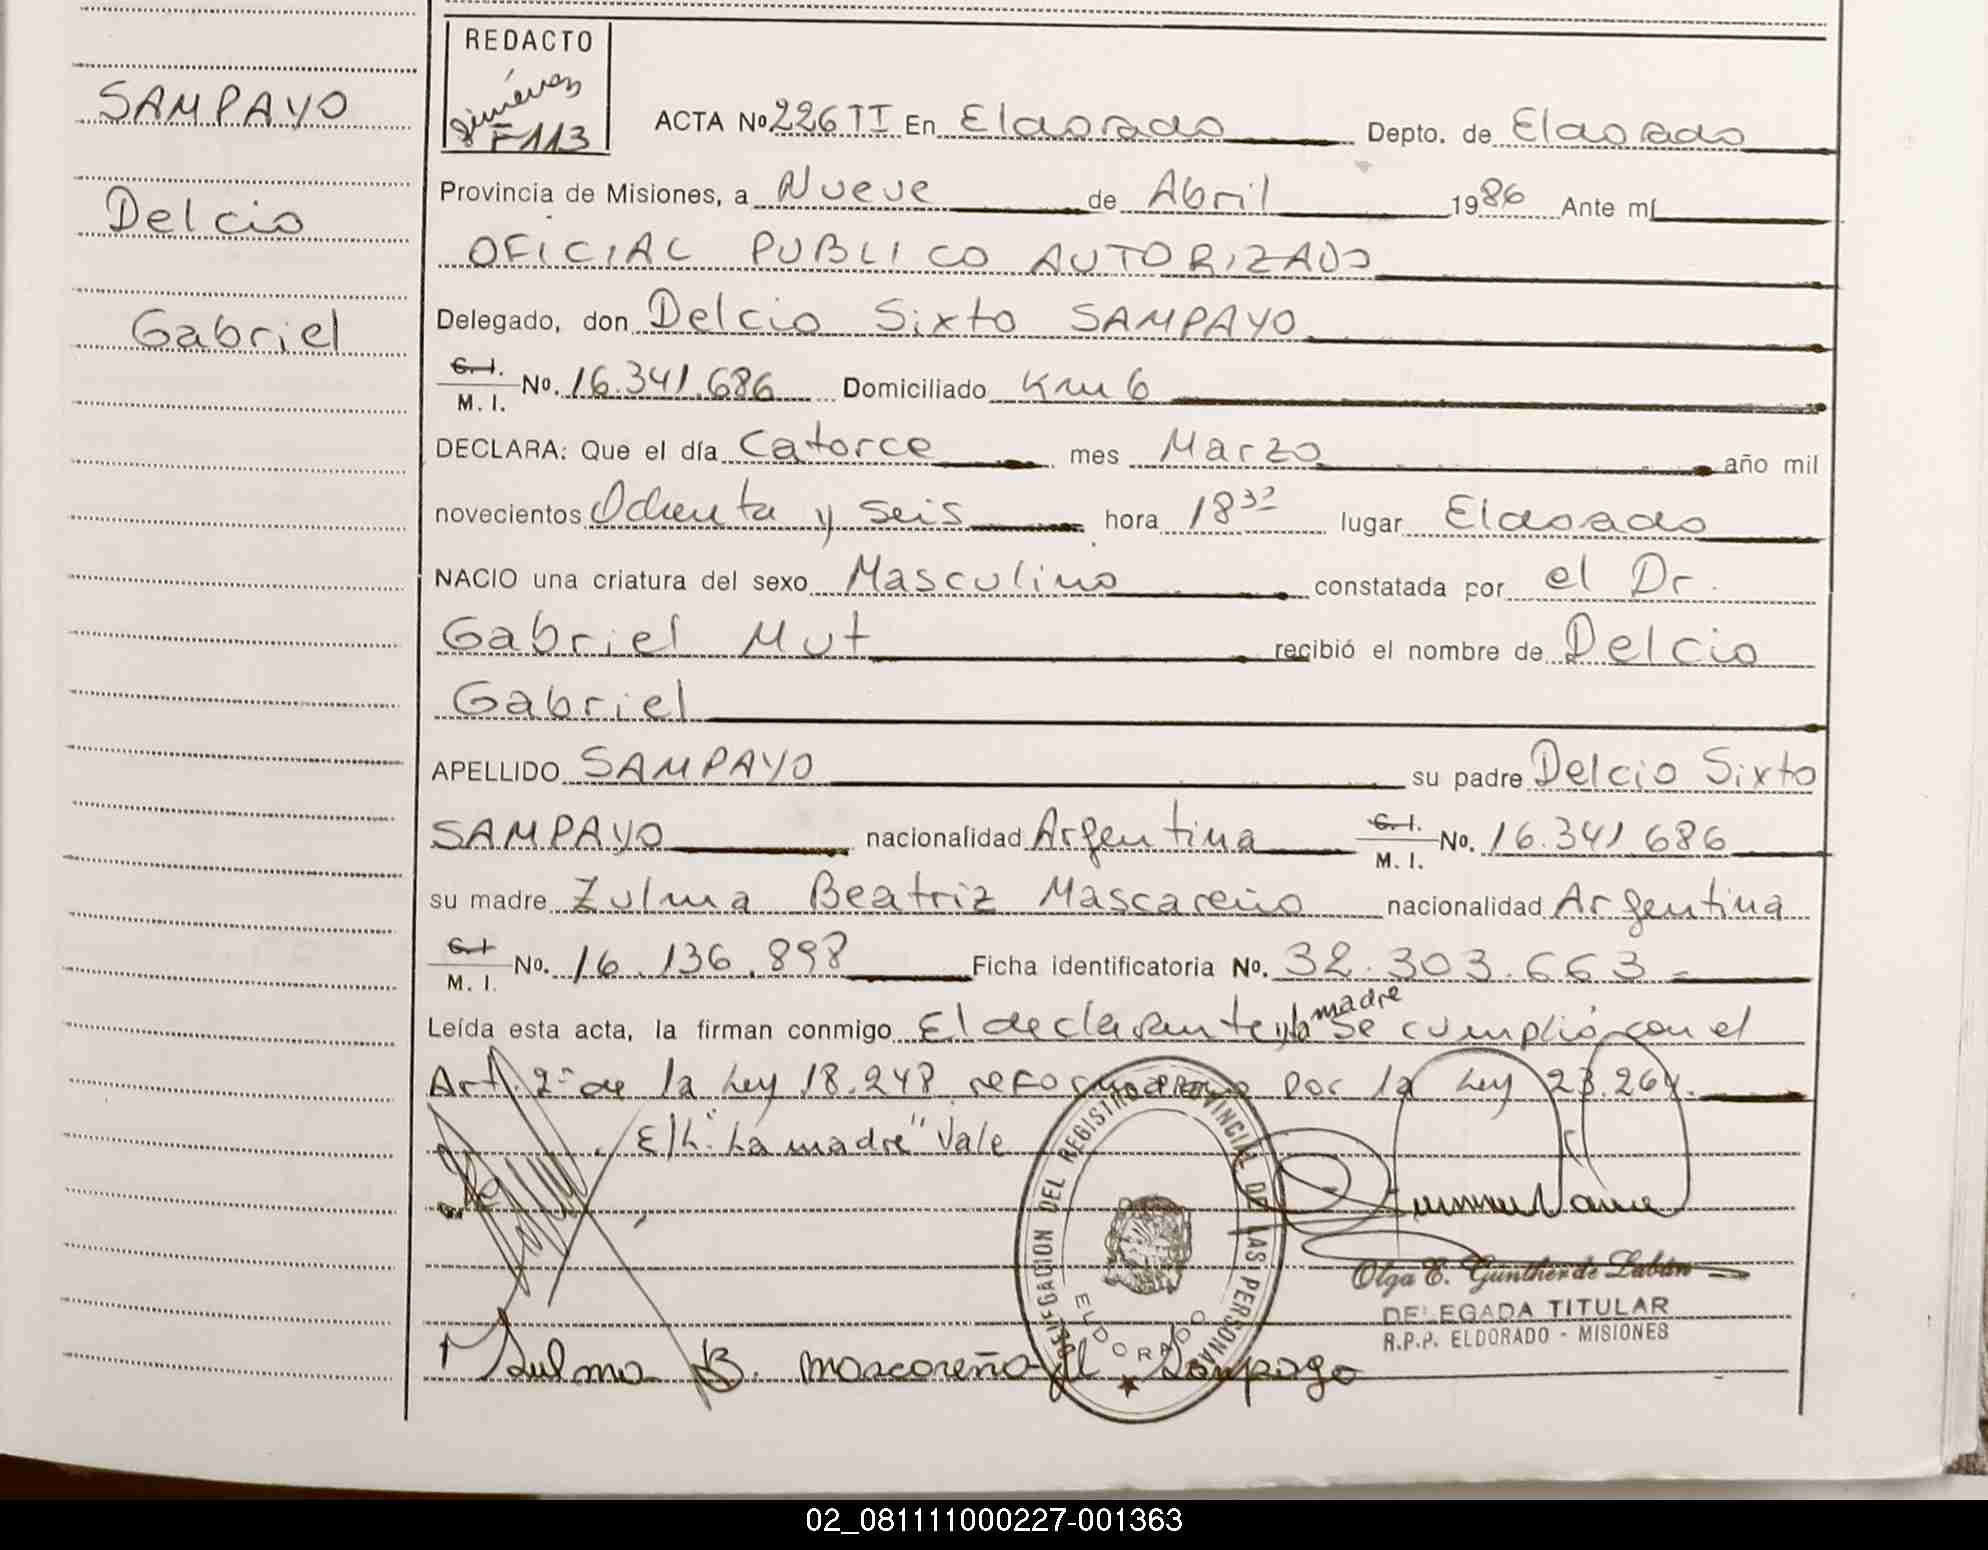 SAMPAYO
Delcio
Gabriel
REDACTO
Giménez
F113
ACTA Nº 226 TI En Eldorado Depto. de Eldorado
Provincia de Misiones, a Nueve de Abril 1986 Ante mí
OFICIAL PUBLICO AUTORIZADO
Delegado, don Delcio Sixto SAMPAYO
C. I.
M. I. Nº. 16.341.686 Domiciliado Km 6
DECLARA: Que el día Catorce mes Marzo año mil
novecientos Ochenta y seis hora 18 32 lugar Eldorado
NACIO una criatura del sexo Masculino constatada por el Dr.
Gabriel Mut recibió el nombre de Delcio
Gabriel
APELLIDO SAMPAYO su padre Delcio Sixto
SAMPAYO nacionalidad Argentina C. I. M. I. Nº. 16.341.686
su madre Zulma Beatriz Mascareño nacionalidad Argentina
C. I. M. I. Nº. 16.136.898 Ficha identificatoria Nº. 32.303.663
Leída esta acta, la firman conmigo El declarante y la madre se cumplió con el
Art. 2º de la Ley 18.248 reformado por la Ley 23.264.
E/L "La madre" Vale
DELEGACION DEL REGISTRO PROVINCIAL DE LAS PERSONAS
ELDORADO
Olga E. Günther de Labán
DELEGADA TITULAR
R.P.P. ELDORADO - MISIONES
Zulma B. Mascareño de Sampayo
02_081111000227-001363